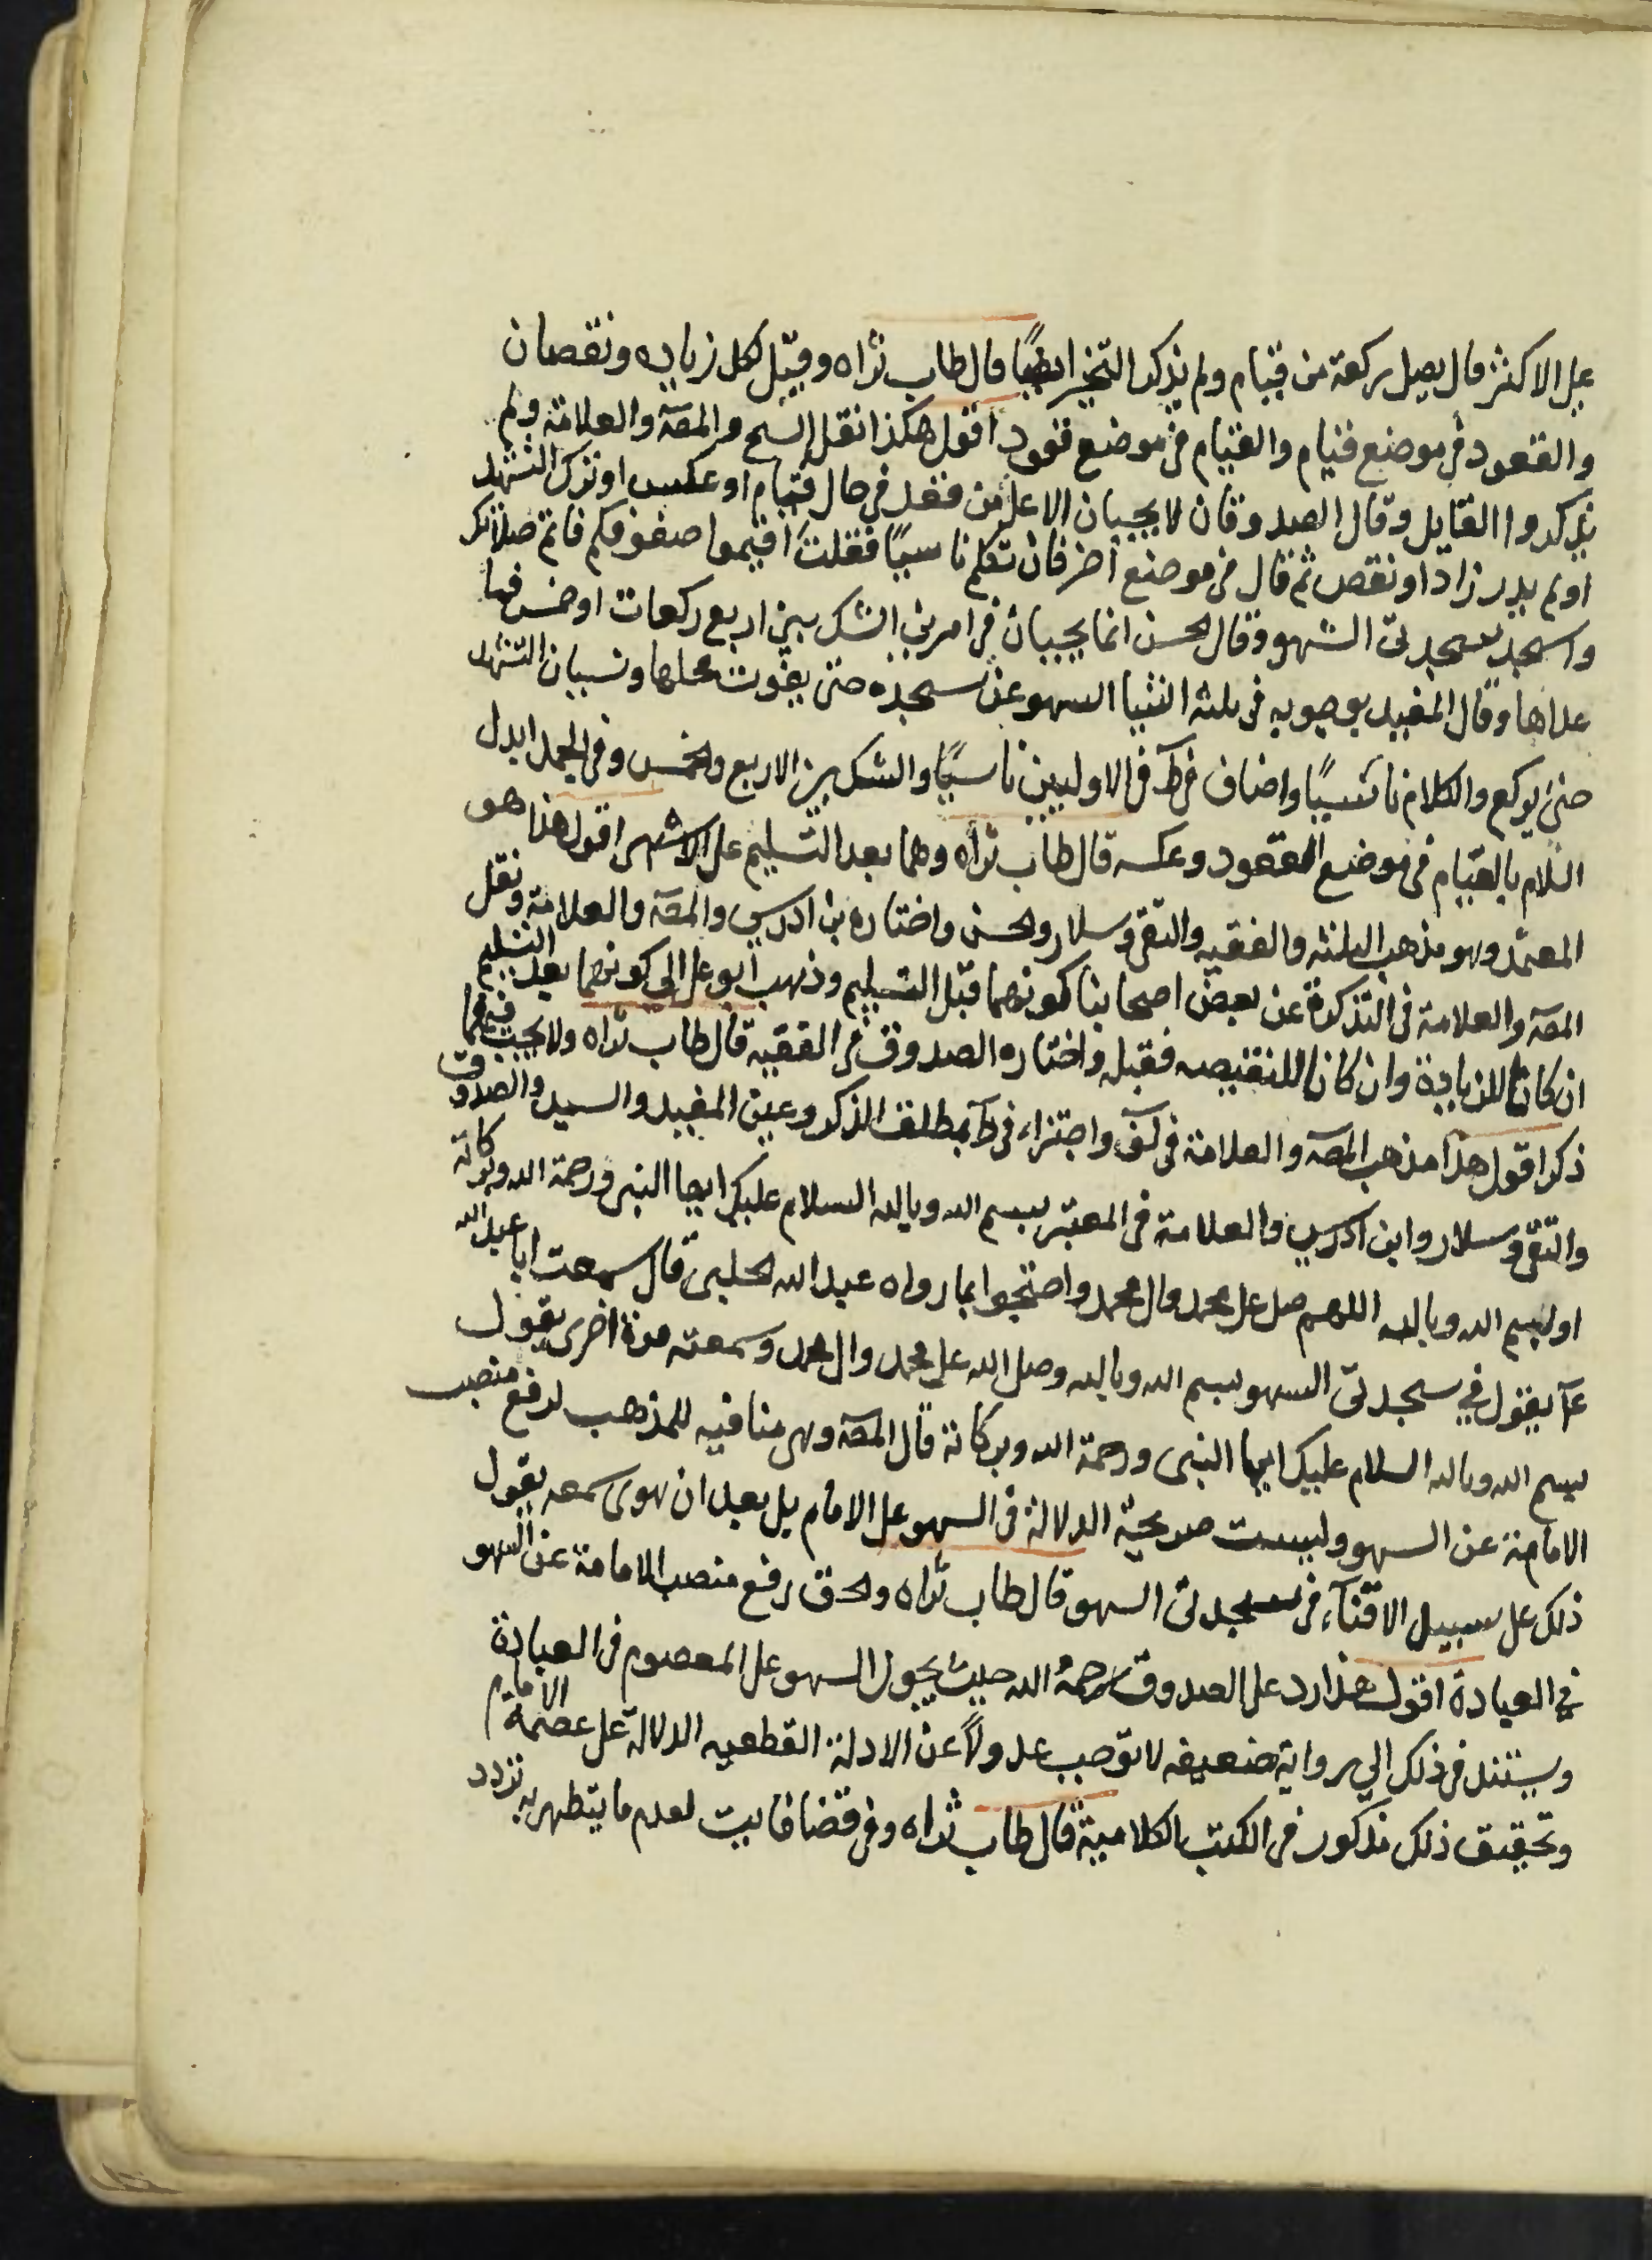 على الاكثر قال يصلى ركعة من قيام ولم يذكر التخير ايضًا قال طاب ثراه وقيل لكل زياده ونقصان
والقعود فى موضع قيام والقيام فى موضع قعود اقول هكذا نقل الشيخ والمصۤ والعلامة ولم
يذكروا القايل وقال الصدوقان لا يجبان الا على من قعد فى حال قيام او عكس او ترك التشهد
او لم يدر زاد او نقص ثم قال فى موضع اخر فان تكلم ناسيًا فقلت اقيموا صفوفكم فاتم صلاتك
واسجد سجدتى السهو وقال الحسن انما يجبان فى امرين الشك بين اربع ركعات او خمس فما
عداها وقال المفيد بوجوبه فى ثلثه اشيا السهو عن سجده حتى يفوت محلها ونسيان التشهد
حتى يركع والكلام ناسيًا واضاف فى طۤ فى الاوليين ناسيًا والشك بين الاربع والخمس وفى الجمل ابدل
السلام بالقيام فى موضع القعود وعكسه قال طاب ثراه وهما بعد التسليم على الاشهر اقول هذا هو
المعتمد وهو مذهب الثلثه والفقيه والتقى وسلار والحسن واختاره بن ادريس والمصۤ والعلامة ونقل
المصۤ والعلامة فى التذكرة عن بعض اصحابنا كونهما قبل التسليم وذهب ابو على الى كونهما بعد التسليم
ان كانا للزيادة وان كانا للنقيصه فقبله واختاره الصدوق فى الفقيه قال طاب ثراه ولا يجب فيهما
ذكر اقول هذا مذهب المصۤ والعلامة فى لفۤ واجتزاء فى طۤ بمطلق الذكر وعين المفيد والسيد والصدوق
والتقى وسلار وابن ادريس والعلامة فى المعتبر ببسم الله وبالله السلام عليك ايها النبى ورحمة الله وبركاته
او بسم الله وبالله اللهم صل على محمد وال محمد واحتجوا بما رواه عبد الله الحلبى قال سمعت ابا عبد الله
عۤ يقول في سجدتى السهو بسم الله وبالله وصلى الله على محمد وال محمد وسمعته مرة اخرى يقول
بسم الله وبالله السلام عليك ايها النبى ورحمة الله وبركاته قال المصۤ وهى منافيه للمذهب لرفع منصب
الامامة عن السهو وليست صريحية الدلالة فى السهو على الامام بل يعد ان هوى سمعه يقول
ذلك على سبيل الافتآء فى سجدتى السهو قال طاب ثراه والحق رفع منصب الامامة عن السهو
في العبادة اقول هذا رد على الصدوق رحمهُ الله حيث يجوز السهو على المعصوم فى العبادة
ويستند فى ذلك الي رواية ضعيفه لا توجب عدولاً عن الادلة القطعيه الدلالة على عصمة الامام
وتحقيق ذلك مذكور فى الكتب الكلامية قال طاب ثراه وفى قضا فايت لعدم ما يتطهر به تردد